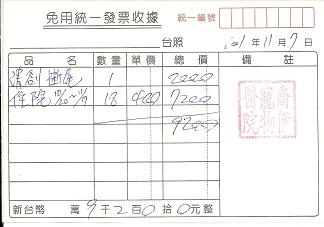 免用統一發票收據
統一編號
台照 101年11月7日
品名 數量 單價 總價 備註
清創 斷尾 1 2000
住院 18 400 7200
9200
喬伊寵物醫院
新台幣 萬9千2百0拾0元整